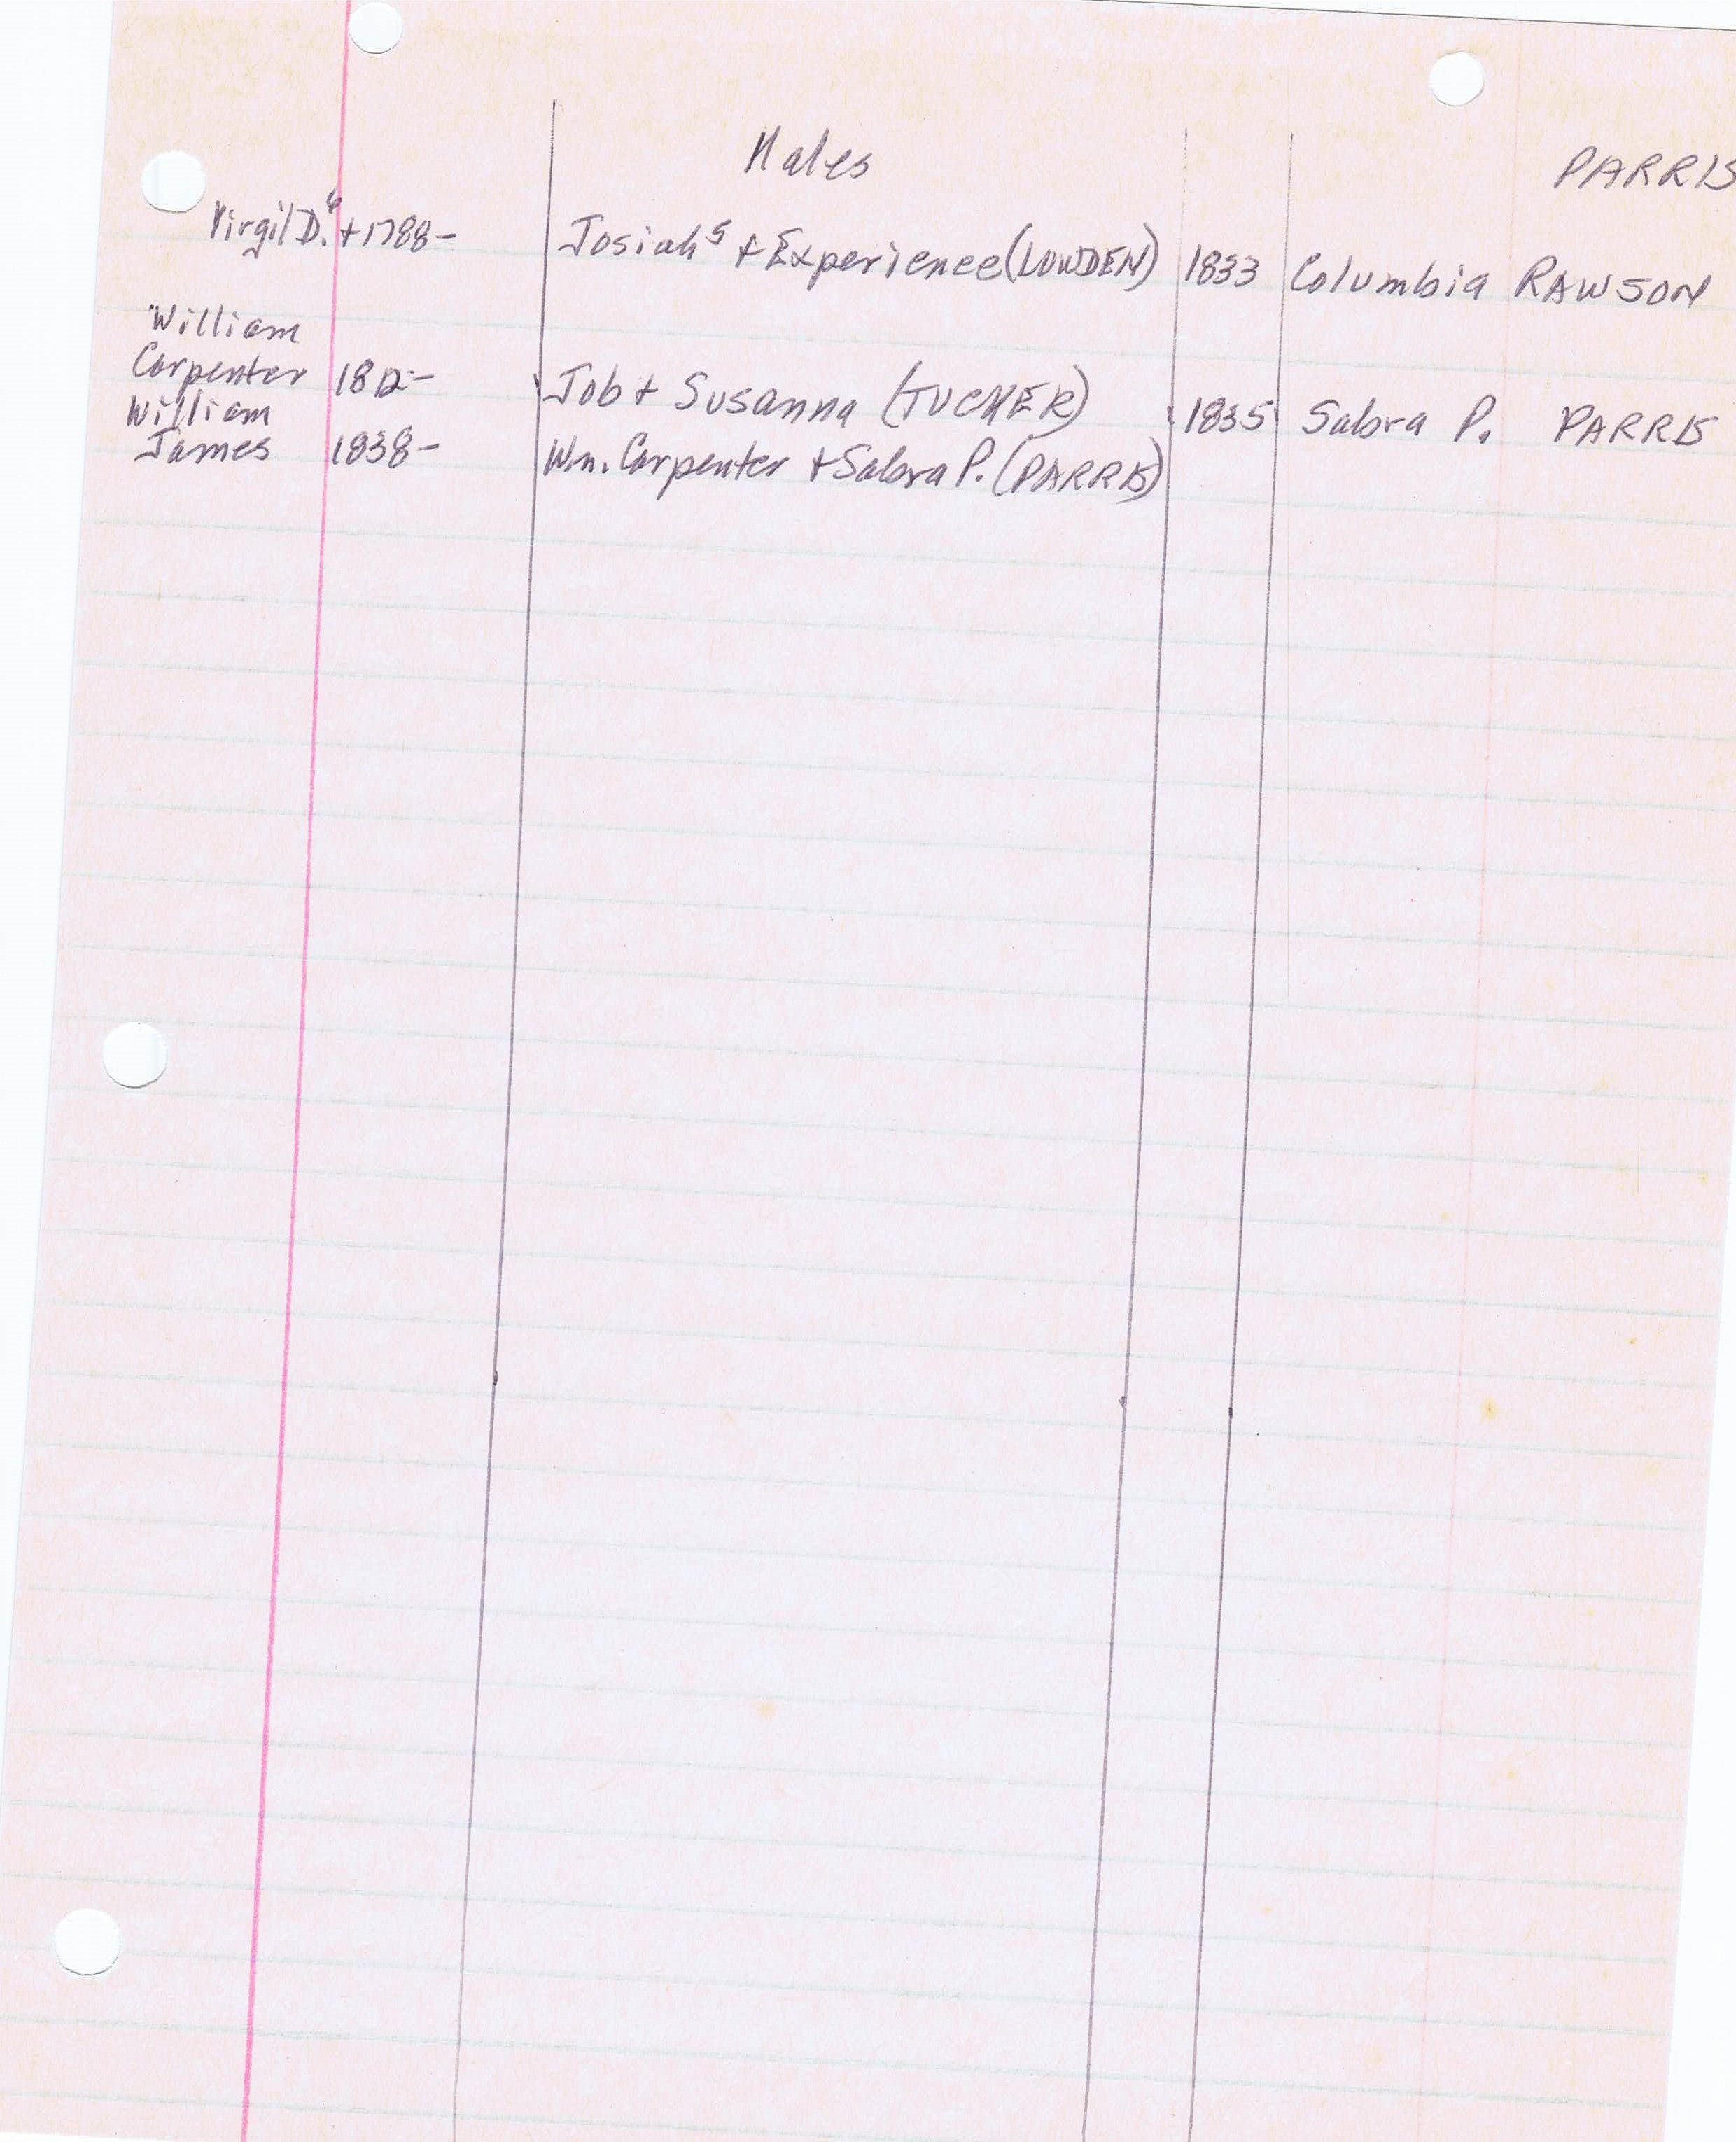 Males PARRIS
Virgil D.⁶ + 1788- Josiah⁵ + Experience (LOWDEN) 1833 Columbia RAWSON
William
Carpenter 1812- Job + Susanna (TUCKER) 1835 Sabra P. PARRIS
William
James 1838- Wm. Carpenter + Sabra P. (PARRIS)